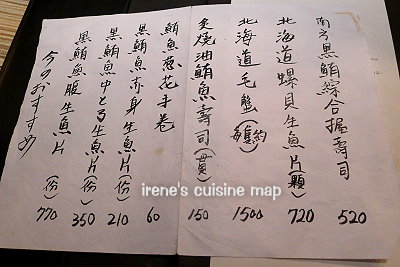 南方黑鮪綜合握壽司 520
北海道螺貝生魚片(顆) 720
北海道毛蟹(隻約) 1500
炙燒油鮪魚壽司(貫) 150
鮪魚蔥花手卷 60
黑鮪魚赤身生魚片(份) 210
黑鮪魚中とろ生魚片(份) 350
黑鮪魚腹生魚片(份) 770
今のおすすめ
irene's cuisine map